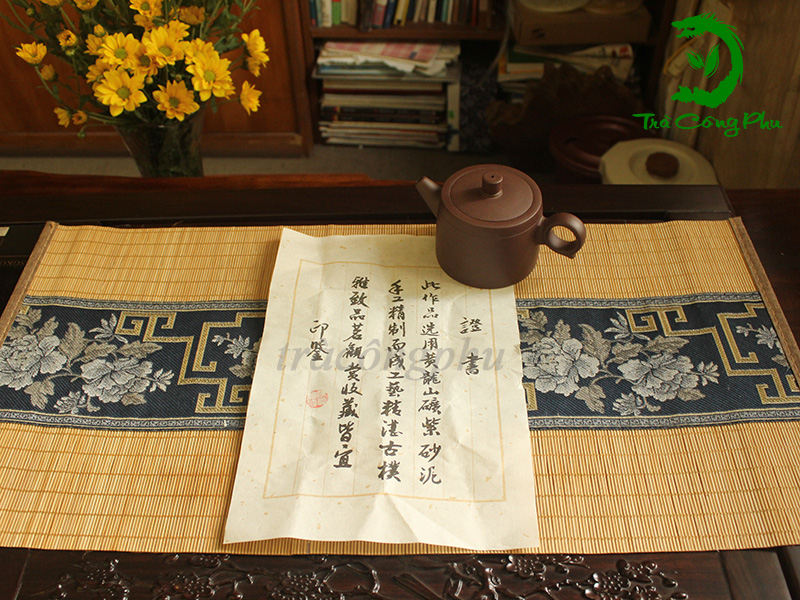 Trà Công Phu
證書
此作品选用黄龍山礦紫砂泥
手工精制而成工藝精湛古樸
雅致品茗觀賞收藏皆宜
印鑒
tracôngphu